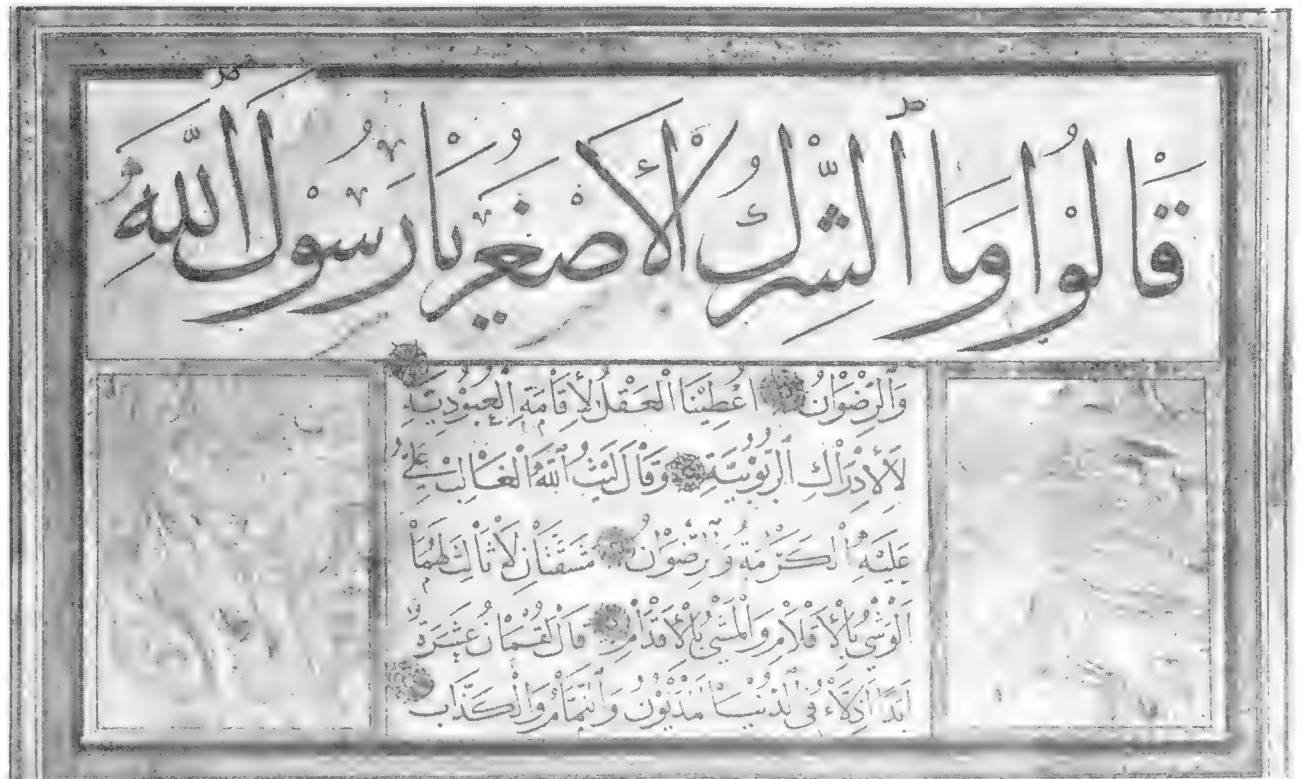 قَالُوا وَمَا ٱلشِّرْكُ ٱلْأَصْغَرُ يَا رَسُولَ ٱللهِ
وَٱلرِّضْوَانُ أُعْطِينَا ٱلْعَقْلَ لِإِقَامَةِ ٱلْعُبُودِيَّةِ
لَا لِإِدْرَاكِ ٱلرُّبُوبِيَّةِ وَقَالَ لَيْثُ ٱللهِ ٱلْغَالِبُ عَلِيٌّ
عَلَيْهِ ٱلْكَرَامَةُ وَٱلرِّضْوَانُ مَشَقَّتَانِ لَا ثَالِثَ لَهُمَا
ٱلْوَشْيُ بِٱلْأَقْلَامِ وَٱلْمَشْيُ بِٱلْأَقْدَامِ قَالَ لُقْمَانُ عَشَرَةٌ
أَبَدًا أَذِلَّاءُ فِي ٱلدُّنْيَا وَٱلنَّمَّامُ وَٱلْكَذَّابُ